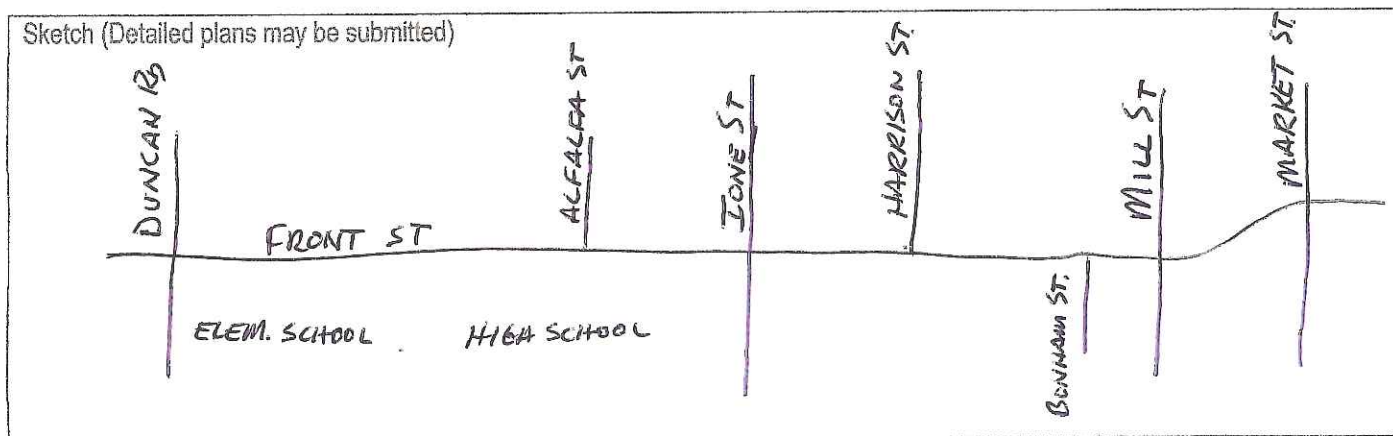 Sketch (Detailed plans may be submitted)
DUNCAN RD
FRONT ST
ALFALFA ST
IONE ST
HARRISON ST.
MILL ST
MARKET ST.
BONHAM ST.
ELEM. SCHOOL . HIGH SCHOOL